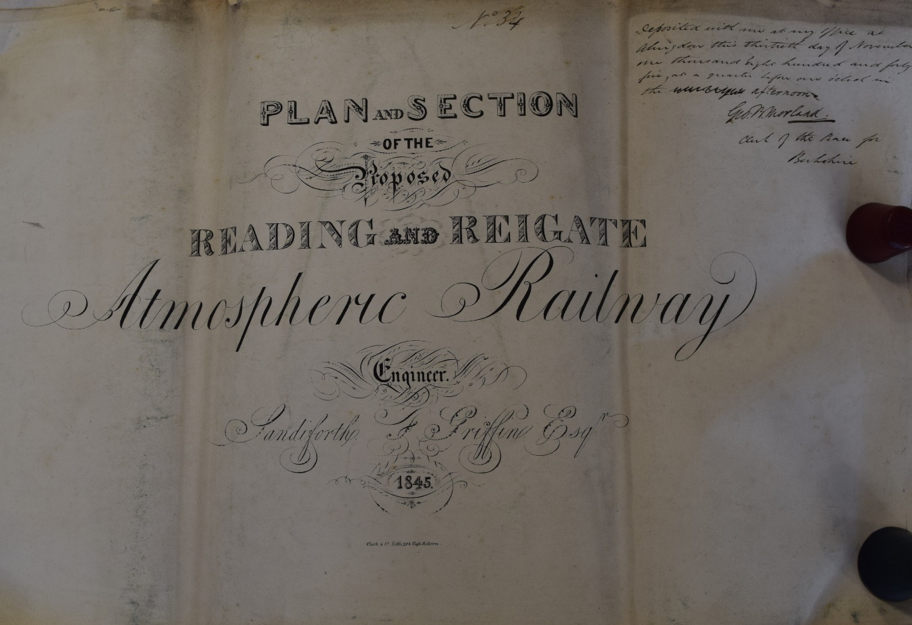 No 34
Deposited with me at my office at
Abingdon this thirtieth day of November
one thousand eight hundred and forty
five, at a quarter before one o'clock in
the afternoon
Geo B Morland.
Clerk of the Peace for
Berkshire
PLAN AND SECTION
OF THE
Proposed
READING AND REIGATE
Atmospheric Railway
Engineer.
Sandiforth F Griffin Esqr
1845.